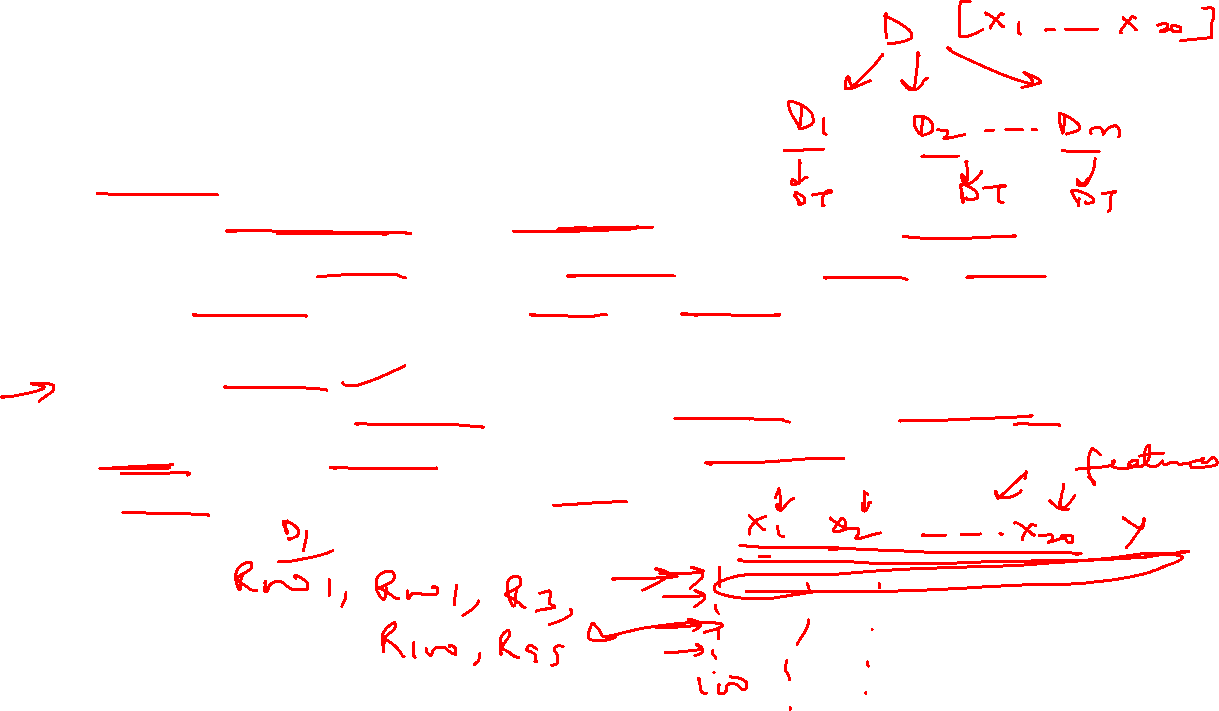 D [X1 ---- X20]
D1 D2 ---- Dm
DT DT DT
features
X1 X2 ---- X20 Y
D1
Row1, Row1, R3,
R100, R95
100